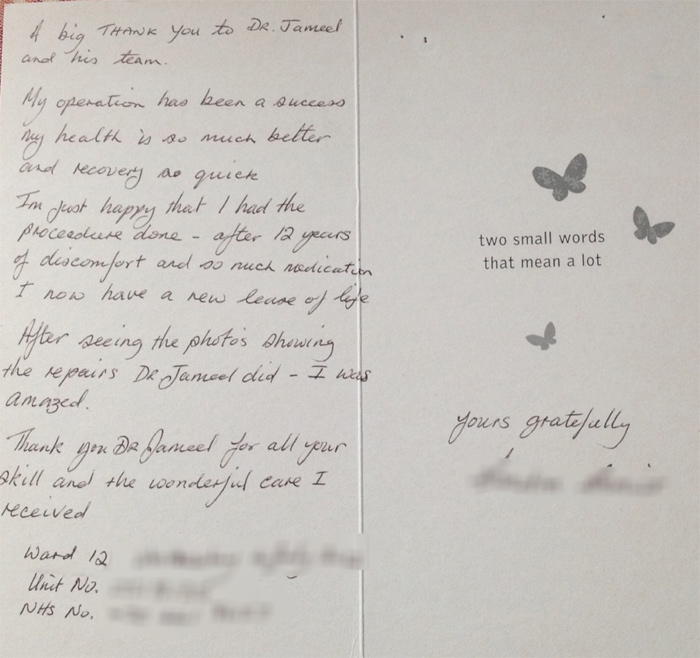 A big THANK you to DR. Jameel
and his team.
My operation has been a success
my health is so much better
and recovery so quick
Im just happy that I had the
proceedure done - after 12 years
of discomfort and so much medication
I now have a new lease of life
After seeing the photo's showing
the repairs DR Jameel did - I was
amazed.
Thank you DR Jameel for all your
skill and the wonderful care I
received
Ward 12
Unit No.
NHS No.
two small words
that mean a lot
yours gratefully